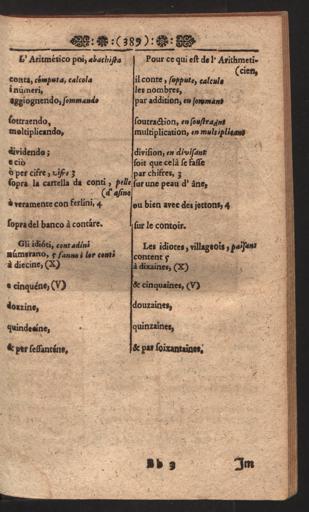 (389)
L' Aritmético poi, abachista
conta, cómputa, calcola
i númeri,
aggiognendo, sommando
sottraendo,
moltiplicando,
dividendo;
e ciò
ò per cifre, cifre 3
sopra la cartella da conti, pelle
(d'asino
ò veramente con ferlini, 4
sopra del banco à contáre.
Gli idióti, contadini
númerano, 5 fanno i lor conti
à diecine, (X)
e cinquéne, (V)
dozzine,
quindecine,
& per sessanténe,
Pour ce qui est de l' Arithmeti-
(cien,
il conte, suppute, calcule
les nombres,
par addition, en sommant
soutraction, en soustraant
multiplication, en multipliant
division, en divisant
soit que celà se fasse
par chifres, 3
sur une peau d' âne,
ou bien avec des jettons, 4
sur le contoir.
Les idiotes, villageois, païsans
content 5
à dixaines, (X)
& cinquaines, (V)
douzaines,
quinzaines,
& par soixantaines,
Bb 3
Im